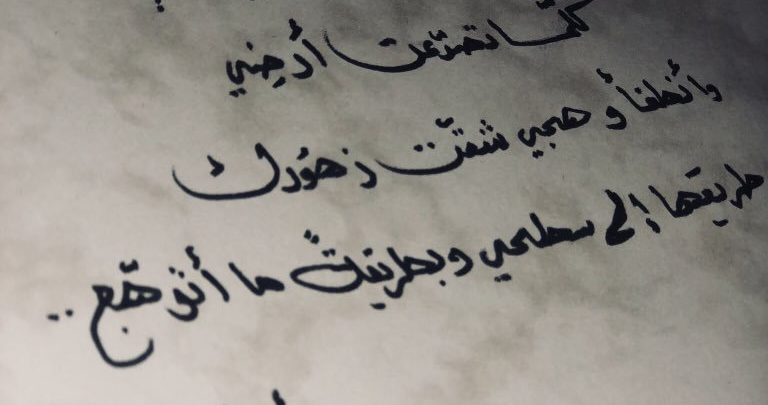 كلّما تصدّعت أرضي
وانطفأ وهجي شقّت زهورك
طريقها إلى سطحي وبطريقةً ما أتوهّج ..